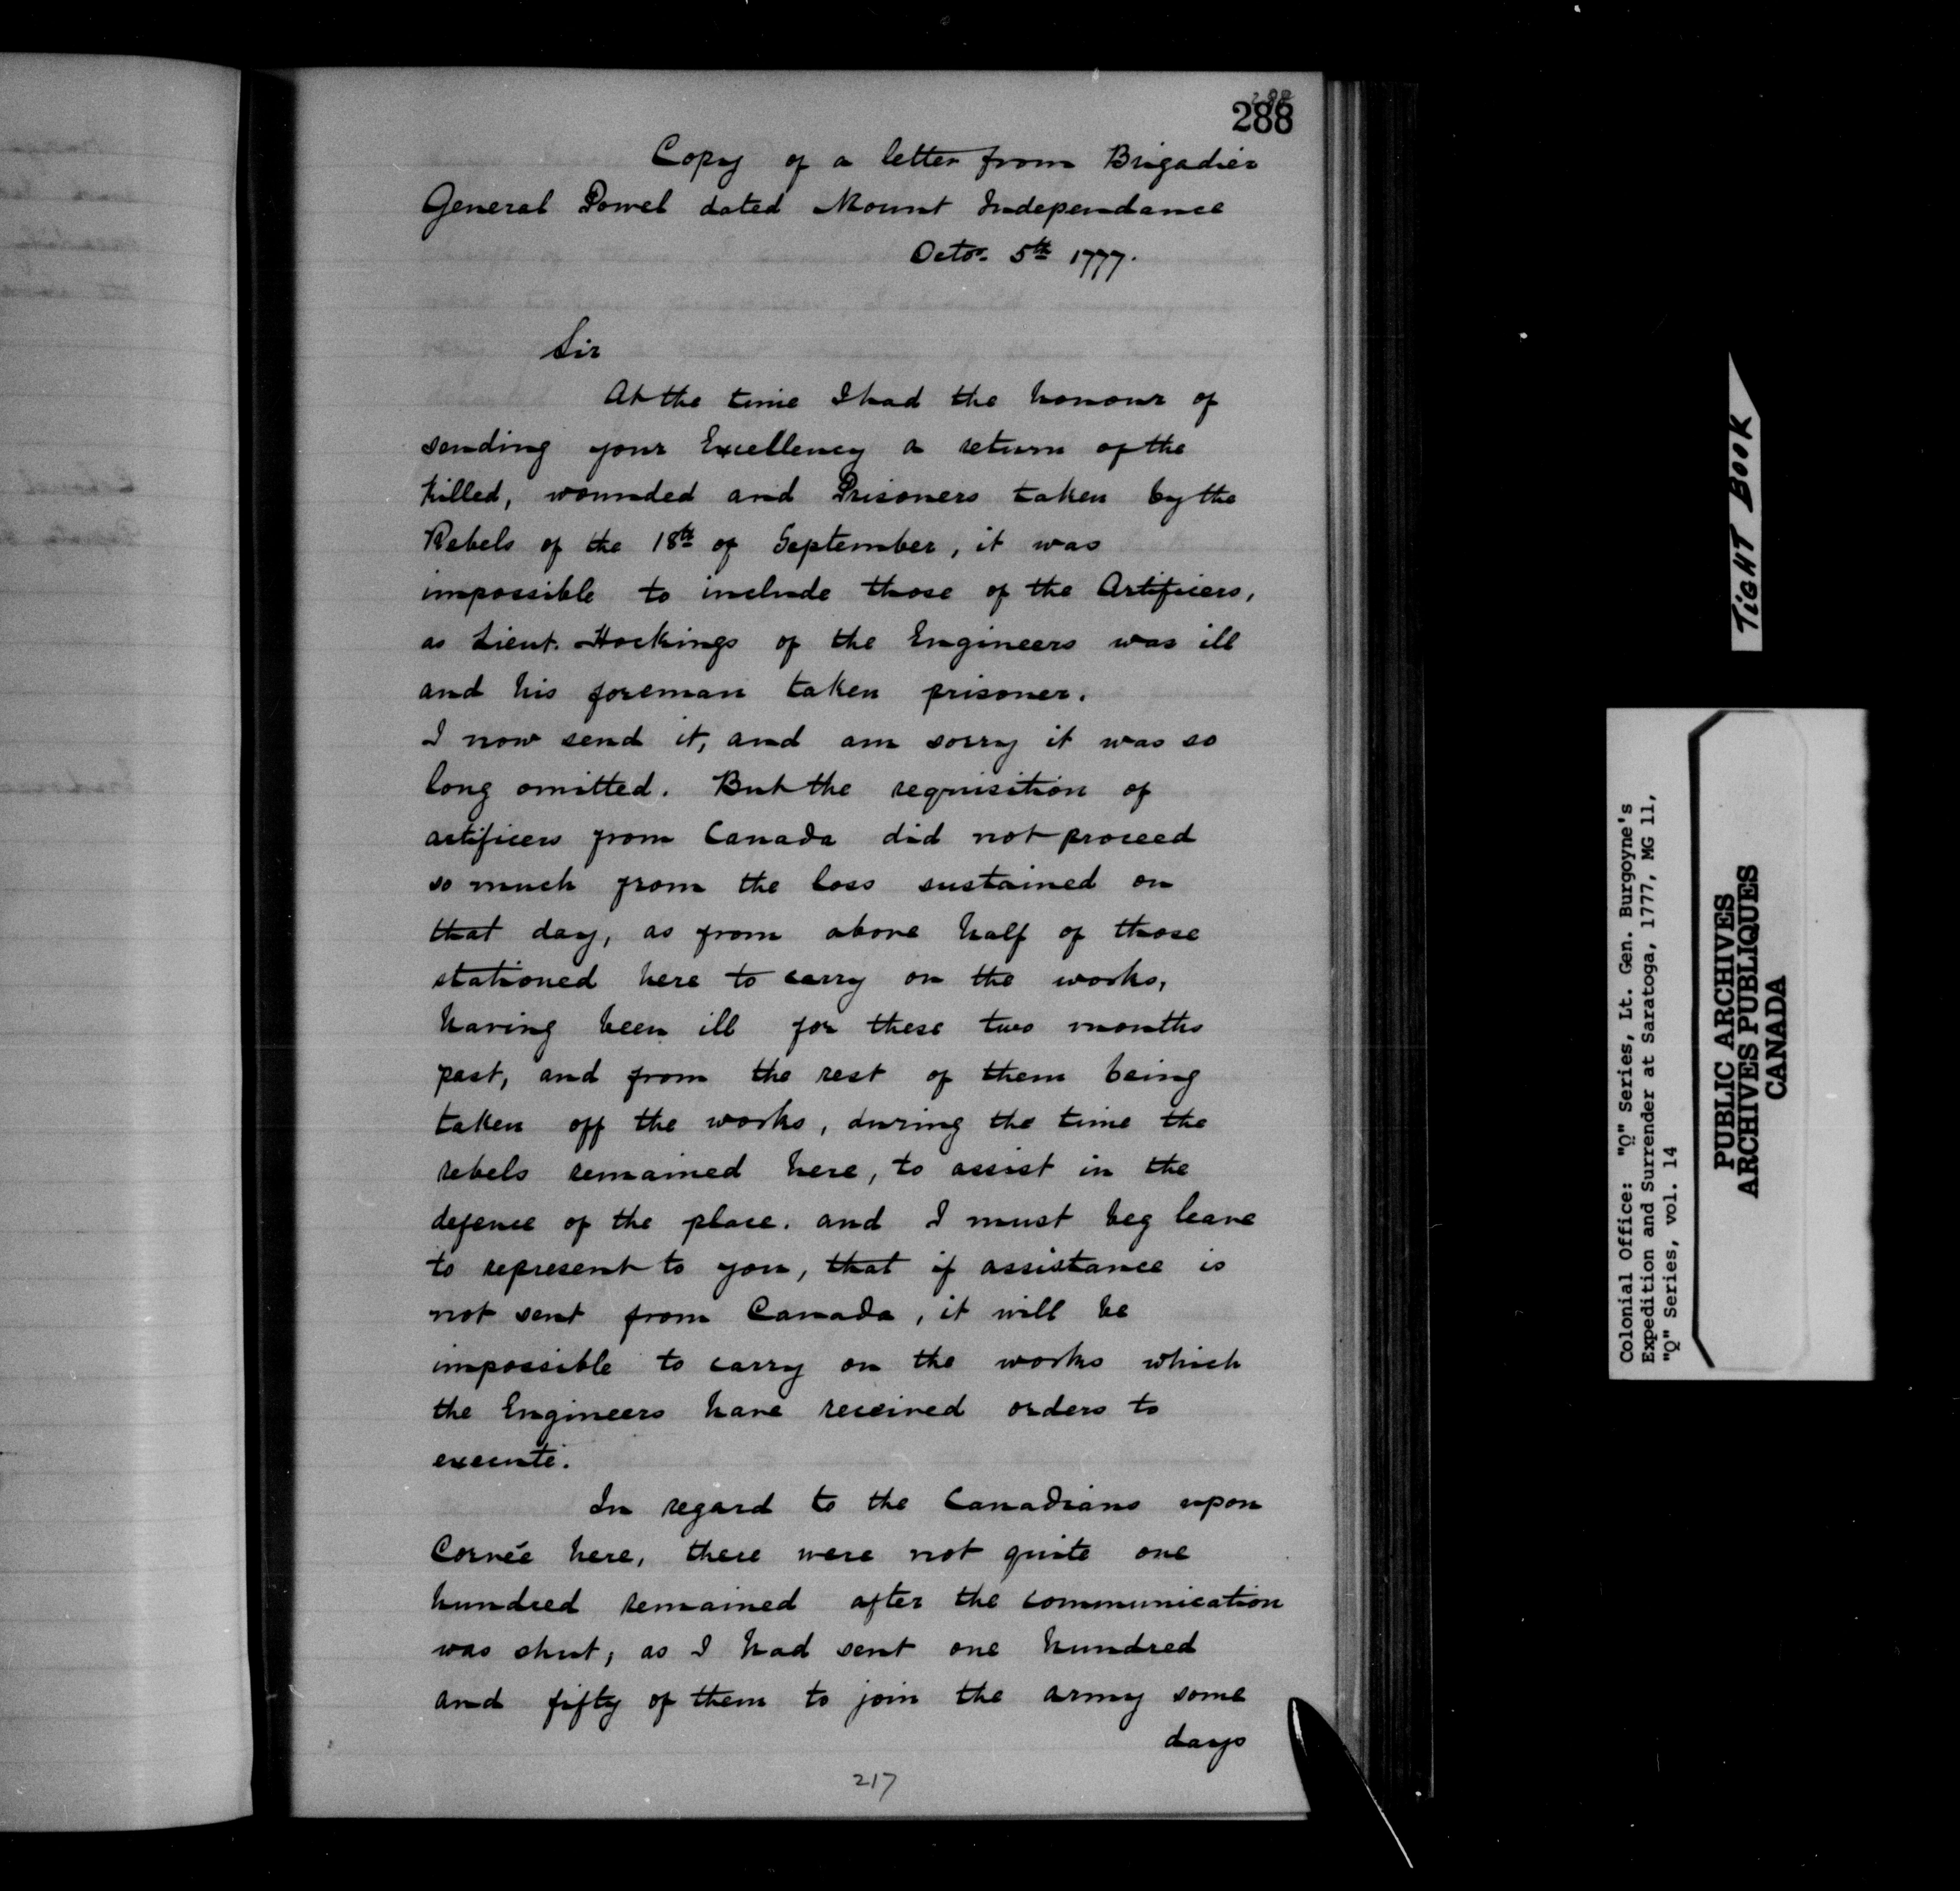 288
Copy of a letter from Brigadier
General Powel dated Mount Independance
Octor. 5th 1777.
Sir
At the time I had the honour of
sending your Excellency a return of the
killed, wounded and Prisoners taken by the
Rebels of the 18th of September, it was
impossible to include those of the Artificers,
as Lieut. Hockings of the Engineers was ill
and his foreman taken prisoner.
I now send it, and am sorry it was so
long omitted. But the requisition of
artificers from Canada did not proceed
so much from the loss sustained on
that day, as from above half of those
stationed here to carry on the works,
having been ill for these two months
past, and from the rest of them being
taken off the works, during the time the
rebels remained here, to assist in the
defence of the place. and I must beg leave
to represent to you, that if assistance is
not sent from Canada, it will be
impossible to carry on the works which
the Engineers have received orders to
execute.
In regard to the Canadians upon
Corvée here, there were not quite one
hundred remained after the communication
was shut, as I had sent one hundred
and fifty of them to join the army some
days
217
TIGHT BOOK
Colonial Office: "Q" Series, Lt. Gen. Burgoyne's
Expedition and Surrender at Saratoga, 1777, MG 11,
"Q" Series, vol. 14
PUBLIC ARCHIVES
ARCHIVES PUBLIQUES
CANADA